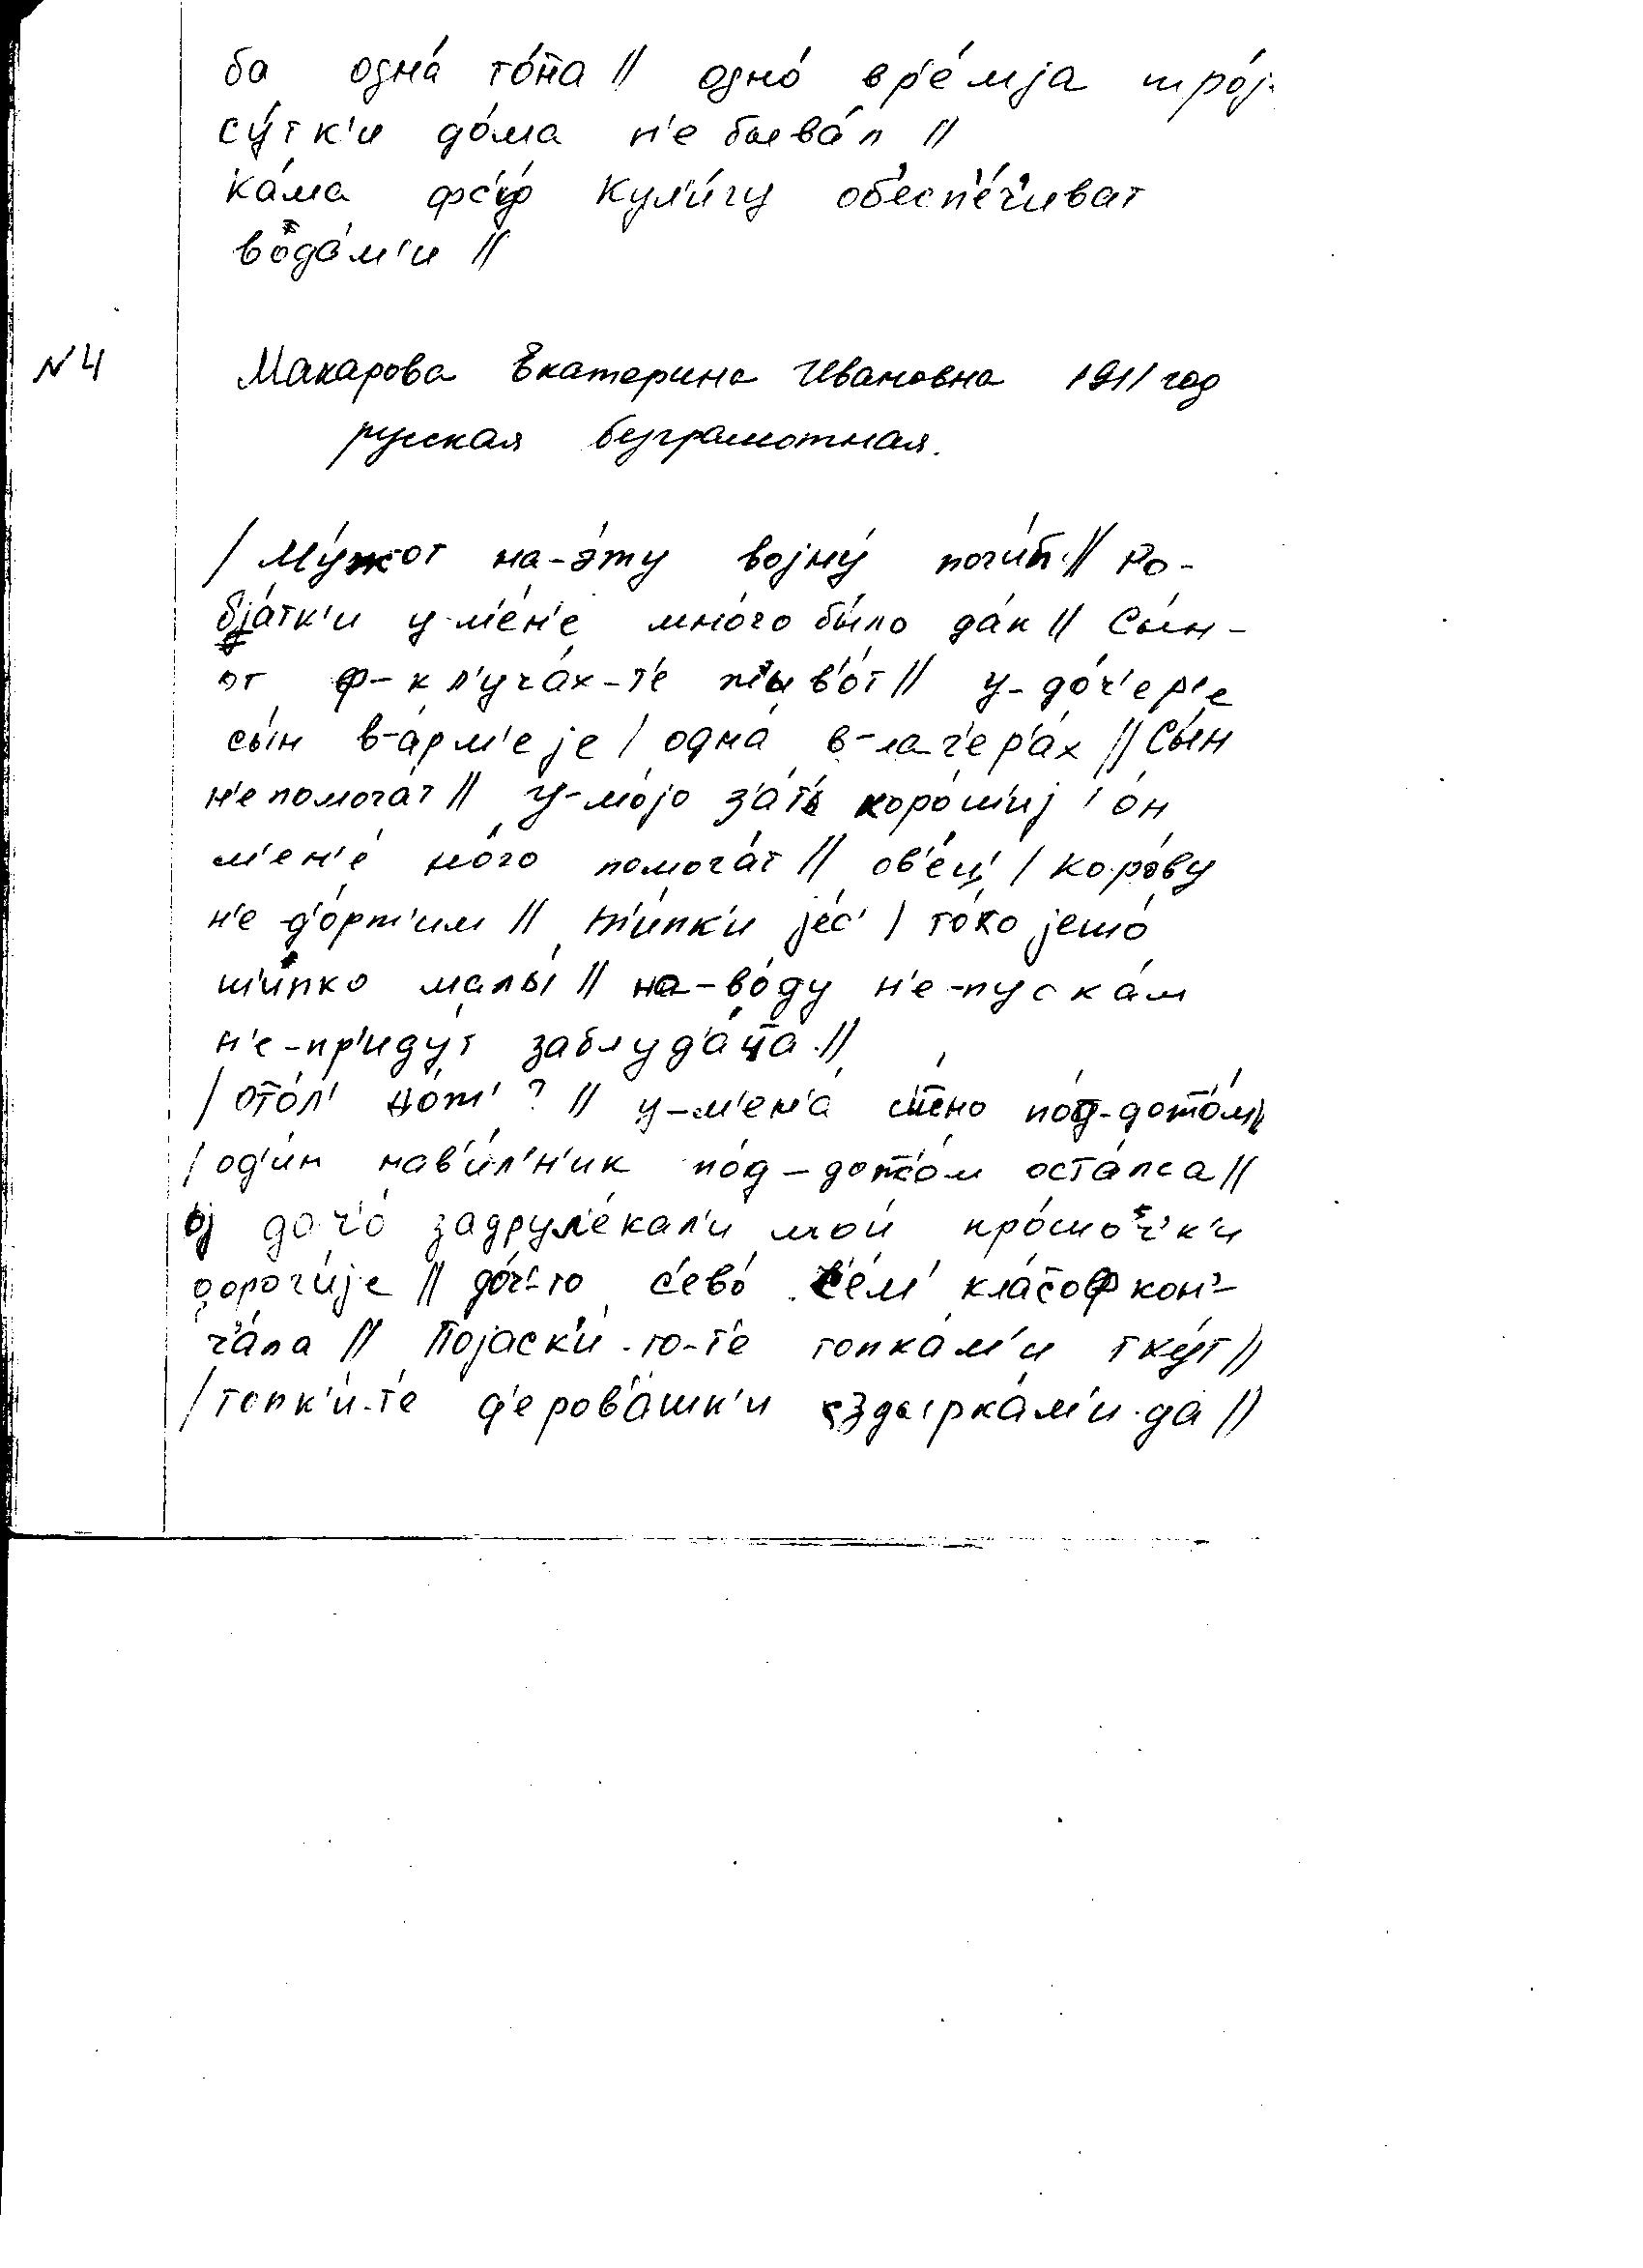 ба одна́ то́н̄а // одно́ вр'е́мја тро́j.
су́тк'и до́ма н'е быва́л //
ка́ма фс'у́ кул'и́гу об'есп'е́ч'иват
вода́м'и //
№4 Макарова Екатерина Ивановна 1911 год
русская безграмотная.
/ му́жот на-э́ту војну́ поги́б // Ро-
б'а́тк'и у-м'е́н'е мно́го бы́ло да́к // Сы́н-
от ф-кл'уча́х-т'е жыв'о́т // у-до́ч'ер'е
сы́н в-а́рм'еје / одна́ в-лаг'ер'а́х // Сы́н
н'е помога́т // у-мо́јо з'а́т' хоро́шиј / о́н
м'ен'е́ но́го помога́т // ов'е́ц' / коро́ву
н'е д'о́рж'им // ж'и́пк'и јес' / то́ко јешо́
ш'и́пко малы́ // на-во́ду н'е-пуска́м
н'е-пр'иду́т заблуд'а́ц̄а //
/ сто́л' но́ж' ? // у-м'ен'а́ с'е́но по́д-дожо́м //
/ од'и́н нав'и́л'н'ик по́д-дожо́м оста́лса //
о́ј до ч'о́ задрул'е́кал'и мои́ кро́шоч'к'и
дорог'и́је // до́ч'-то с'ево́ с'е́м' кла́соф кон'-
ч'а́ла // Појаск'и́-то-т'е топка́м'и тку́т //
/ топк'и́-т'е д'еров'а́шк'и здырка́м'и-да //